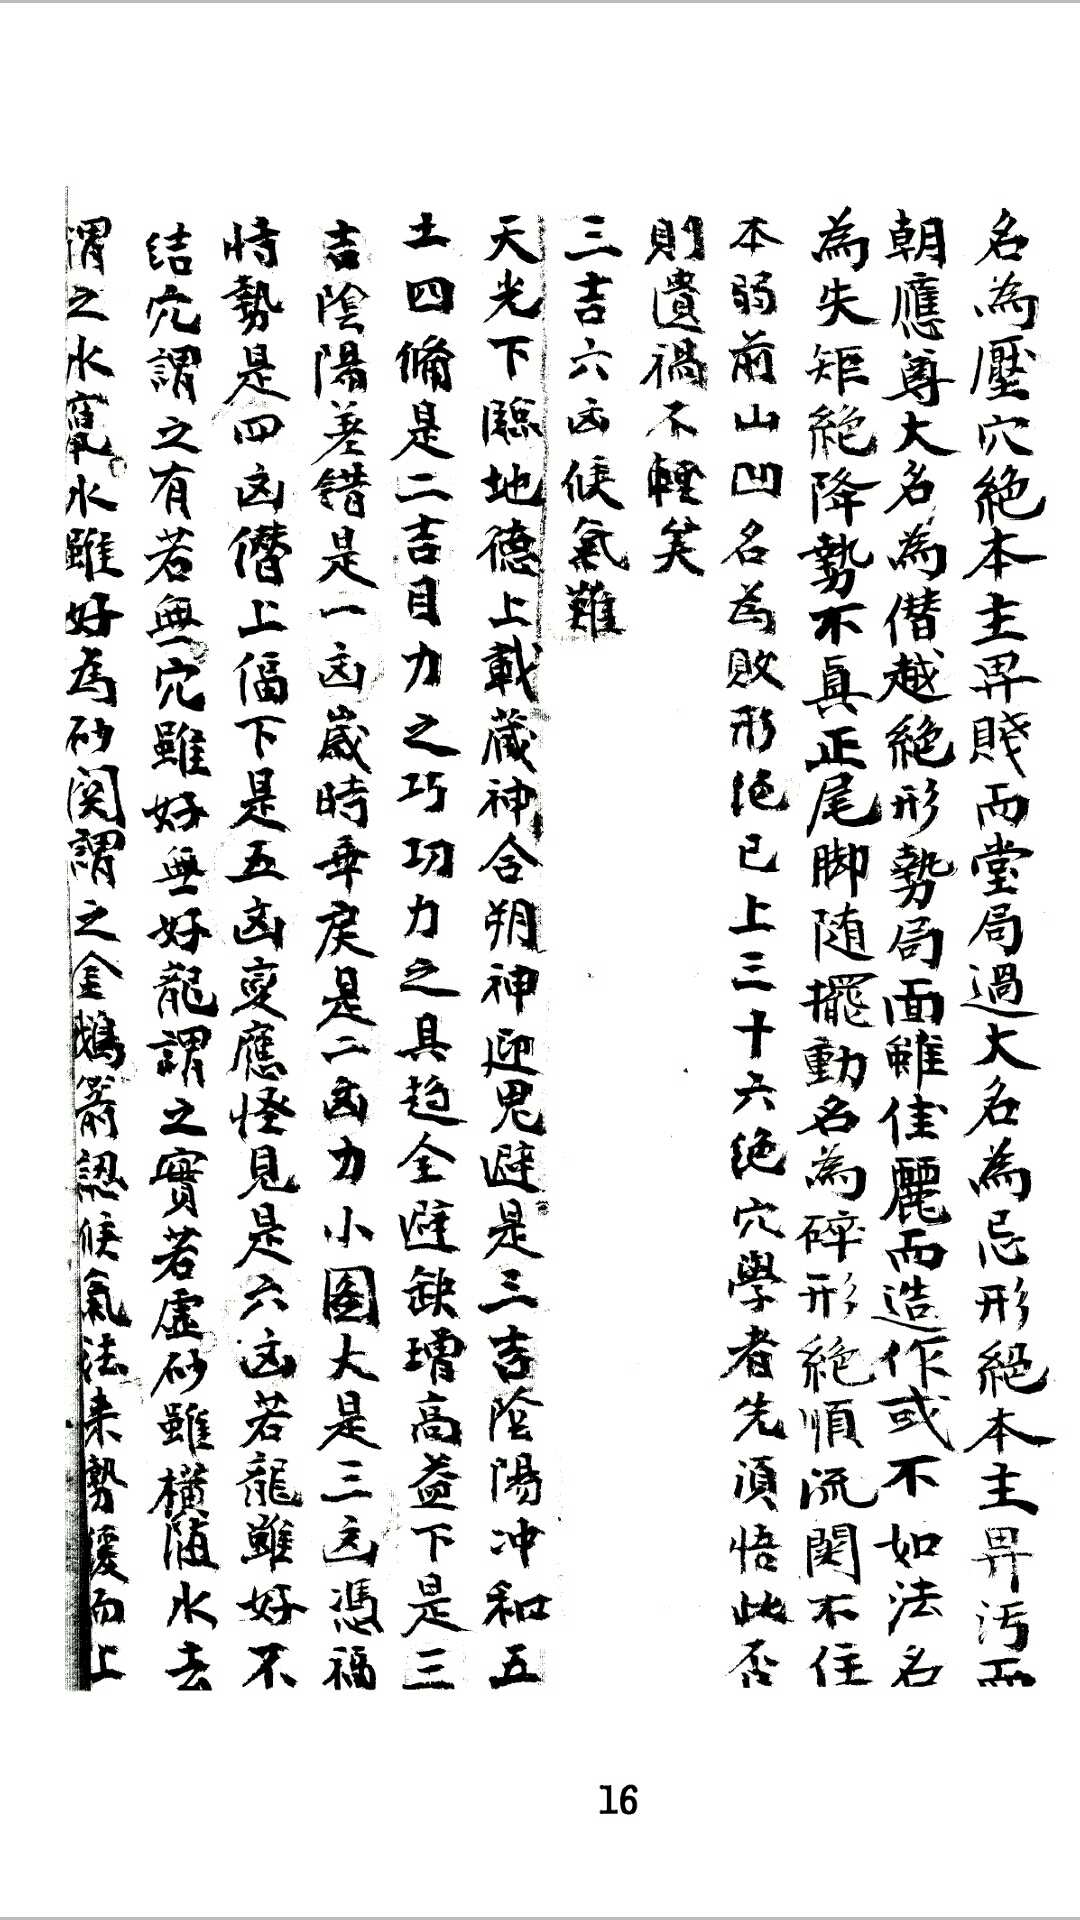 名為壓穴絕本主畀賤而堂局過大名為忌形絕本主畀污而
朝應尊大名為僭越絕形勢局面雖佳麗而造作或不如法名
為失矩絕降勢不真正尾脚随擺動名為碎形絕順流関不住
本弱前山凹名為敗形绝已上三十六绝穴學者先須悟此否
則遺禍不輕矣
三吉六凶候氣難
天光下臨地德上載蔵神合朔神迎鬼避是三吉陰陽冲和五
土四備是二吉目力之巧功力之具趋全避缺增高益下是三
吉陰陽差錯是一凶歲時乖戾是二凶力小圖大是三凶憑福
恃勢是四凶僭上偪下是五凶变應怪見是六凶若龍雖好不
结穴謂之有若無穴雖好無好龍謂之實若虚砂雖橫随水去
謂之水水雖好為砂関謂之金鵝箭認候氣法来勢優而上
16